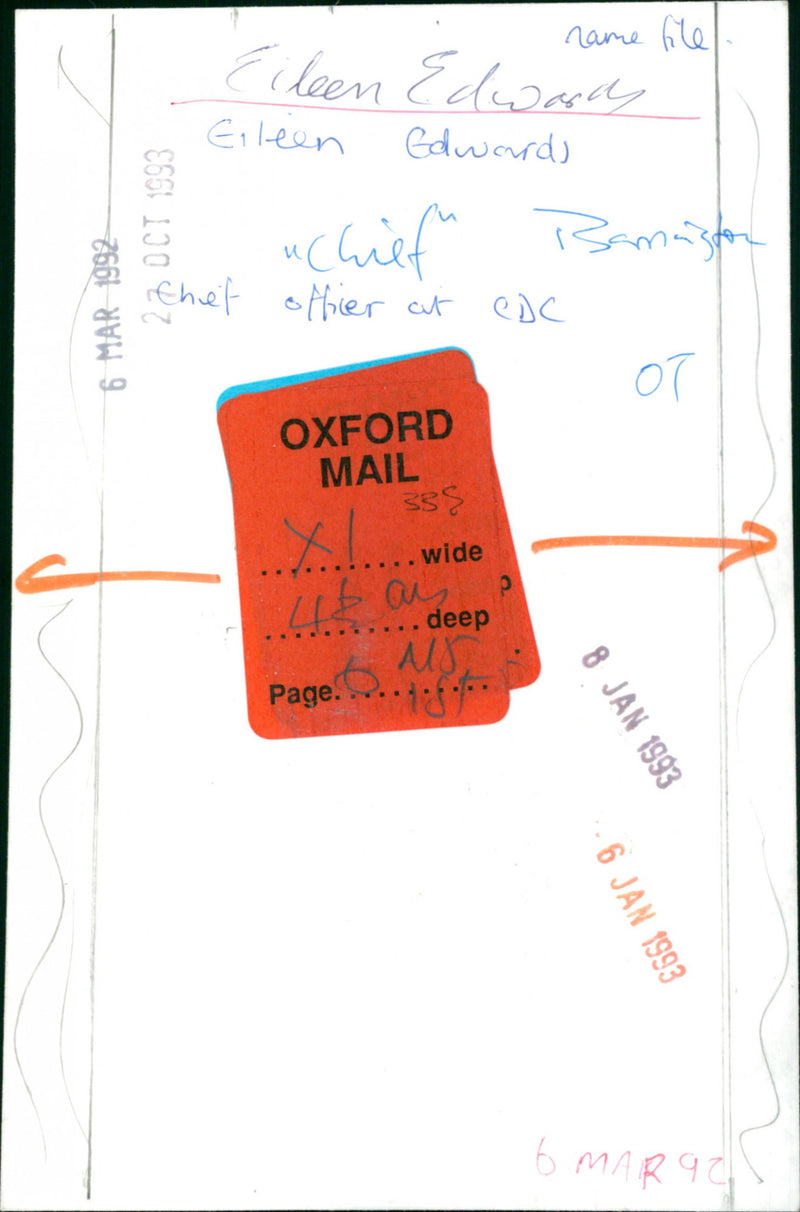 name file.
Eileen Edwards
Eileen Edwards
27 OCT 1993
"Chief" Barrington
6 MAR 1992
Chief officer at CDC
OT
OXFORD
MAIL
338
X1
..........wide
deep
Page. 6 NS
1st
8 JAN 1993
6 JAN 1993
6 MAR 92